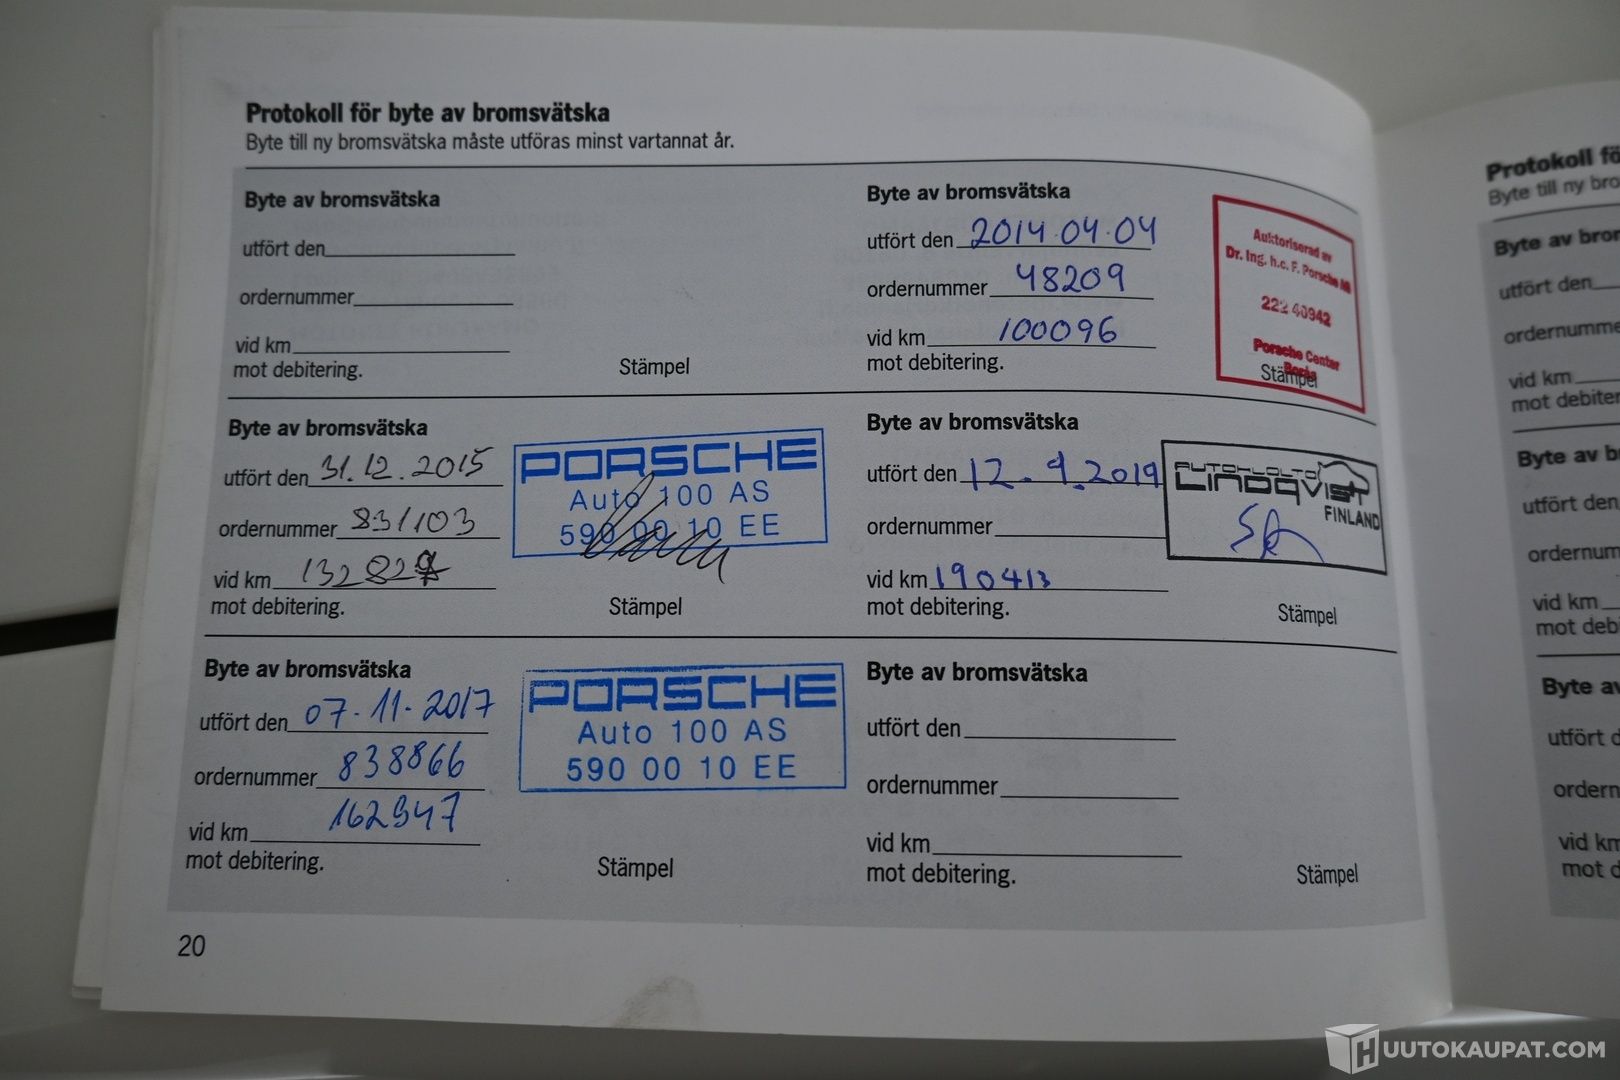 Protokoll för byte av bromsvätska
Byte till ny bromsvätska måste utföras minst vartannat år.
Byte av bromsvätska
utfört den
ordernummer
vid km
mot debitering.
Stämpel
Byte av bromsvätska
utfört den 2014.04.04
ordernummer 48209
vid km 100096
mot debitering.
Auktoriserad av
Dr. Ing. h.c. F. Porsche AG
222 40942
Porsche Center
Borås
Stämpel
Byte av bromsvätska
utfört den 31.12.2015
ordernummer 831103
vid km 132829
mot debitering.
PORSCHE
Auto 100 AS
590 00 10 EE
Stämpel
Byte av bromsvätska
utfört den 12.9.2019
ordernummer
vid km 190413
mot debitering.
AUTOHUOLTO
LINDQVIST
FINLAND
Stämpel
Byte av bromsvätska
utfört den 07-11-2017
ordernummer 838866
vid km 162947
mot debitering.
PORSCHE
Auto 100 AS
590 00 10 EE
Stämpel
Byte av bromsvätska
utfört den
ordernummer
vid km
mot debitering.
Stämpel
20
Protokoll fö
Byte till ny bro
Byte av bror
utfört den
ordernumme
vid km
mot debiter
Byte av b
utfört den
ordernum
vid km
mot deb
Byte av
utfört d
ordern
vid km
mot d
HUUTOKAUPAT.COM